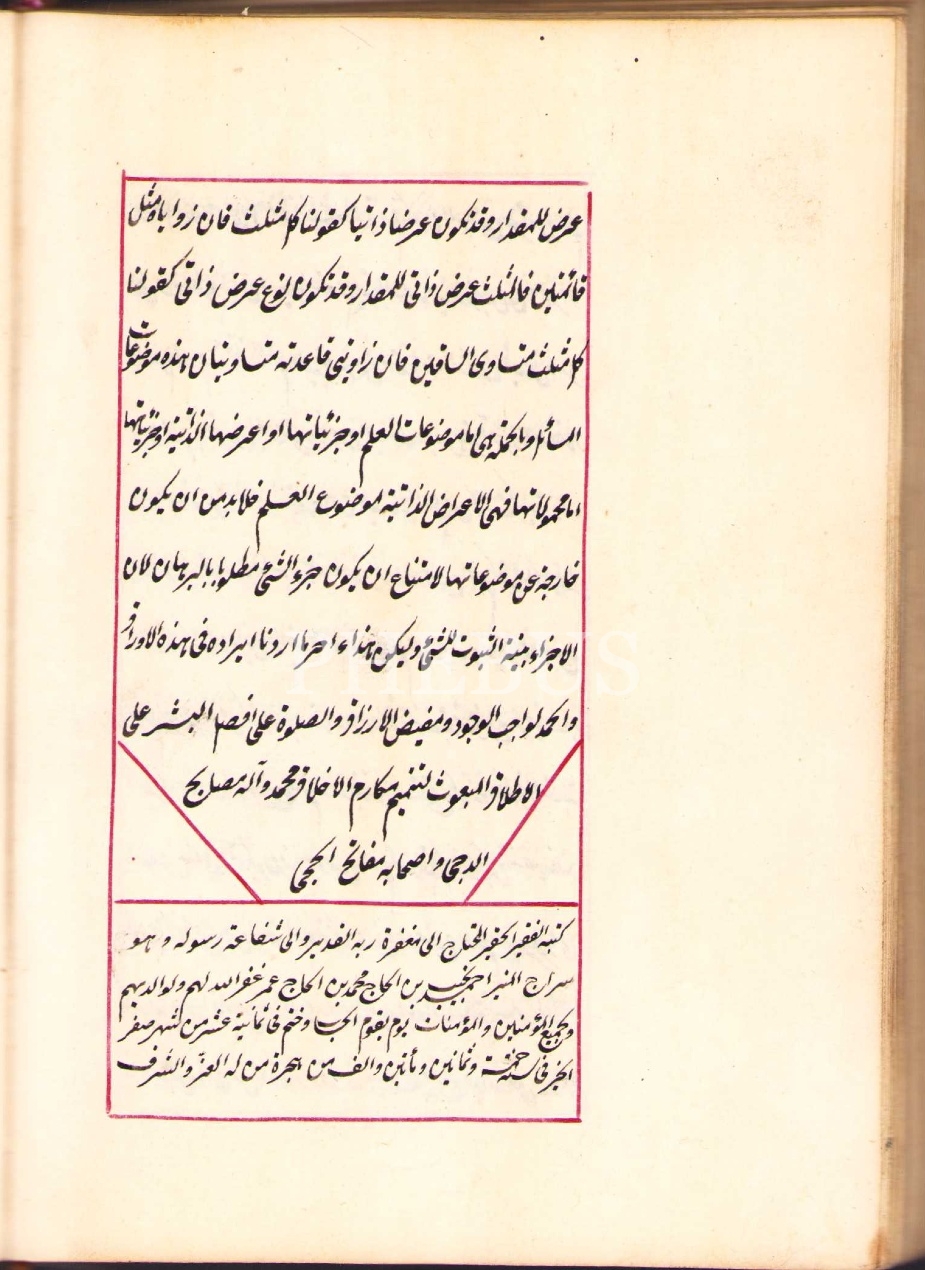 عرض للمقدار وقد تكون عرضا ذاتيا كقولنا كل مثلث فان زواياه مثل
قائمتين فالمثلث عرض ذاتي للمقدار وقد تكون نوع عرض ذاتي كقولنا
كل مثلث متساوى الساقين فان زاويتي قاعدته متساويتان هذه موضوعات
المسائل وبالجملة هي اما موضوعات العلم او جزئياتها او اعراضها الذاتية او جزئياتها
اما محمولاتها فهي الاعراض الذاتية لموضوع العلم فلا بد من ان يكون
خارجة عن موضوعاتها لامتناع ان يكون جزء الشئ مطلوبا بالبرهان لان
الاجزاء بينة الثبوت للشئ وليكن هذا اخر ما اردنا ايراده في هذه الاوراق
والحمد لواجب الوجود ومفيض الارزاق والصلوة على افضل البشر على
الاطلاق المبعوث لتتميم مكارم الاخلاق محمد وآله مصابيح
الدجى واصحابه مفاتح الحجى
كتبه الفقير الحقير المحتاج الى مغفرة ربه القدير والى شفاعة رسوله وهو
سراج المنير احمد نجيب بن الحاج محمد بن الحاج عمر غفر الله لهم ولوالديهم
ولجميع المؤمنين والمؤمنات يوم يقوم الحساب وختم في ثمانية عشر من شهر صفر
الخير في سنة خمسة وثمانين ومأتين والف من هجرة من له العز والشرف
PHEBUS